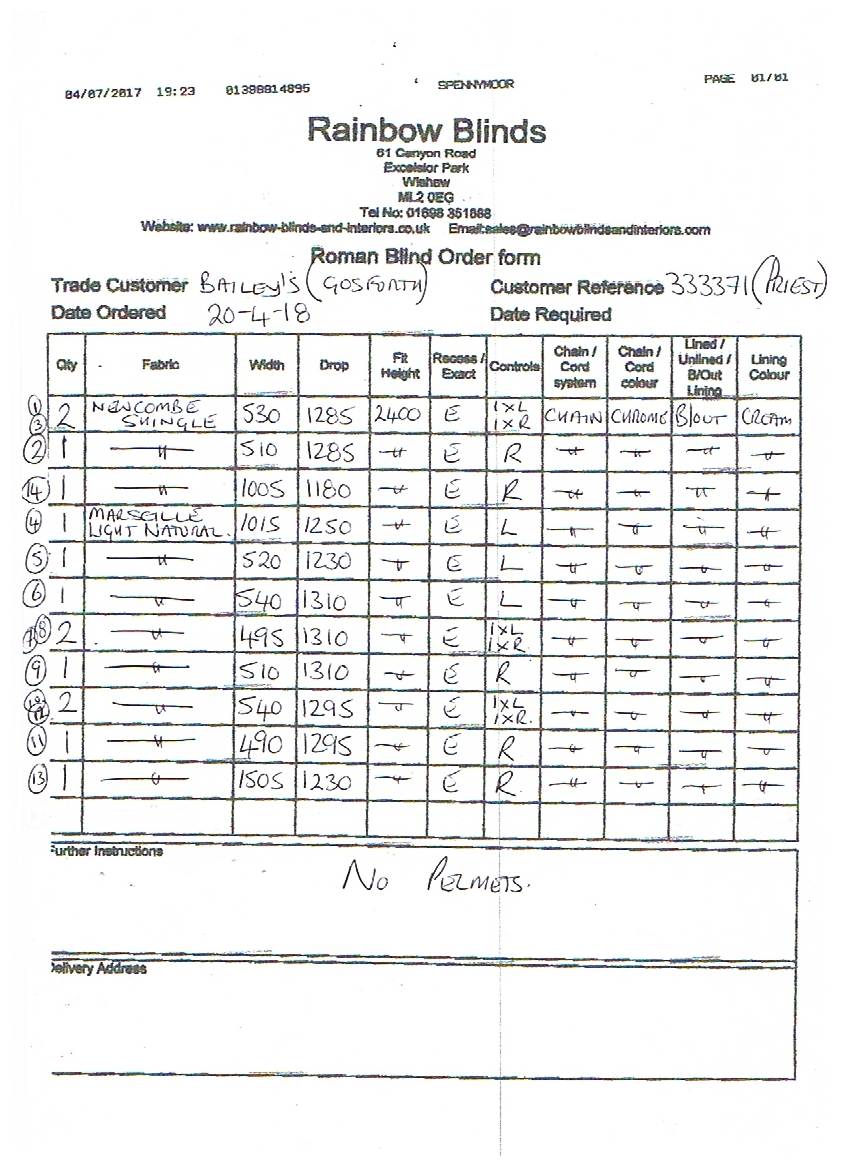 04/07/2017 19:23 01388814895 SPENNYMOOR PAGE 01/01
Rainbow Blinds
61 Canyon Road
Excelsior Park
Wishaw
ML2 0EG
Tel No: 01698 351888
Website: www.rainbow-blinds-and-interiors.co.uk Email:sales@rainbowblindsandinteriors.com
Roman Blind Order form
Trade Customer BAILEY'S (GOSFORTH) Customer Reference 333371 (PRIEST)
Date Ordered 20-4-18 Date Required
Qty Fabric Width Drop Fit Height Recess / Exact Controls Chain / Cord system Chain / Cord colour Lined / Unlined / B/Out Lining Lining Colour
1 3 2 NEWCOMBE SHINGLE 530 1285 2400 E 1XL 1XR CHAIN CHROME B/OUT CREAM
2 1 —"— 510 1285 —"— E R —"— —"— —"— —"—
14 1 —"— 1005 1180 —"— E R —"— —"— —"— —"—
4 1 MARSEILLE LIGHT NATURAL. 1015 1250 —"— E L —"— —"— —"— —"—
5 1 —"— 520 1230 —"— E L —"— —"— —"— —"—
6 1 —"— 540 1310 —"— E L —"— —"— —"— —"—
7 8 2 —"— 495 1310 —"— E 1XL 1XR —"— —"— —"— —"—
9 1 —"— 510 1310 —"— E R —"— —"— —"— —"—
10 12 2 —"— 540 1295 —"— E 1XL 1XR. —"— —"— —"— —"—
11 1 —"— 490 1295 —"— E R —"— —"— —"— —"—
13 1 —"— 1505 1230 —"— E R —"— —"— —"— —"—
Further Instructions
No PELMETS.
Delivery Address